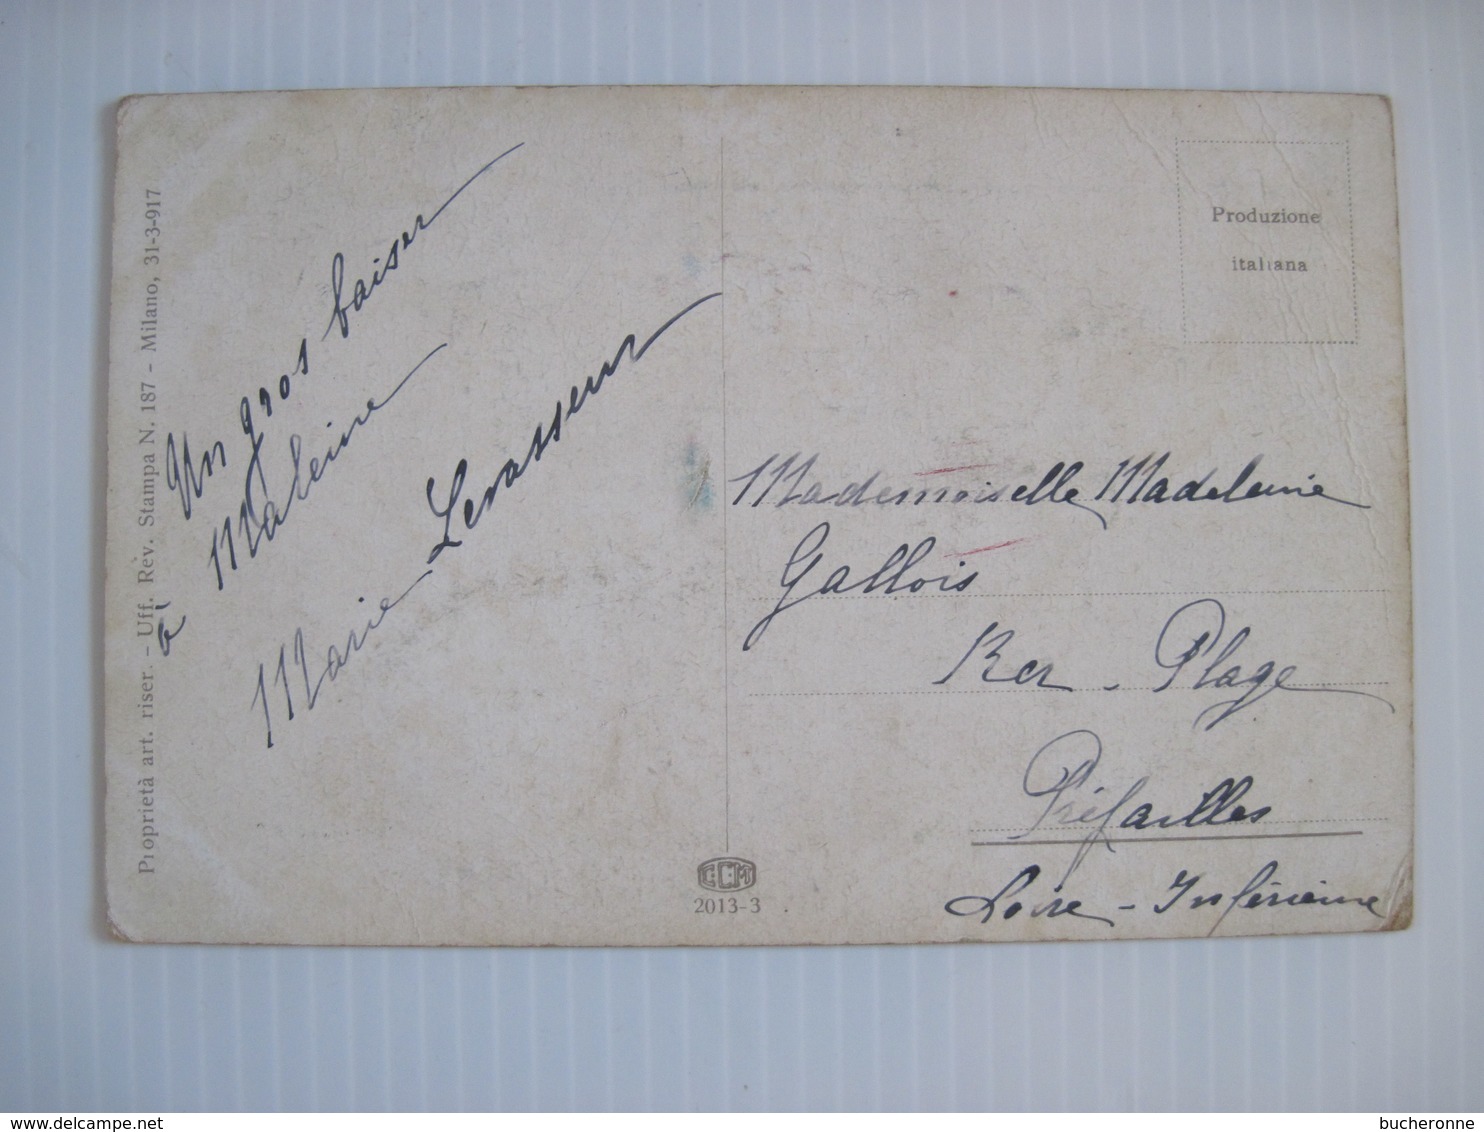 Proprietà art. riser. - Uff. Rèv. Stampa N. 187 - Milano, 31-3-917
Un gros baiser
à Maleine
Marie Levasseur
Produzione
italiana
Mademoiselle Madeleine
Gallois
Ker - Plage
Préfailles
Loire - Inférieure
C.C.M
2013-3
© delcampe.net
bucheronne